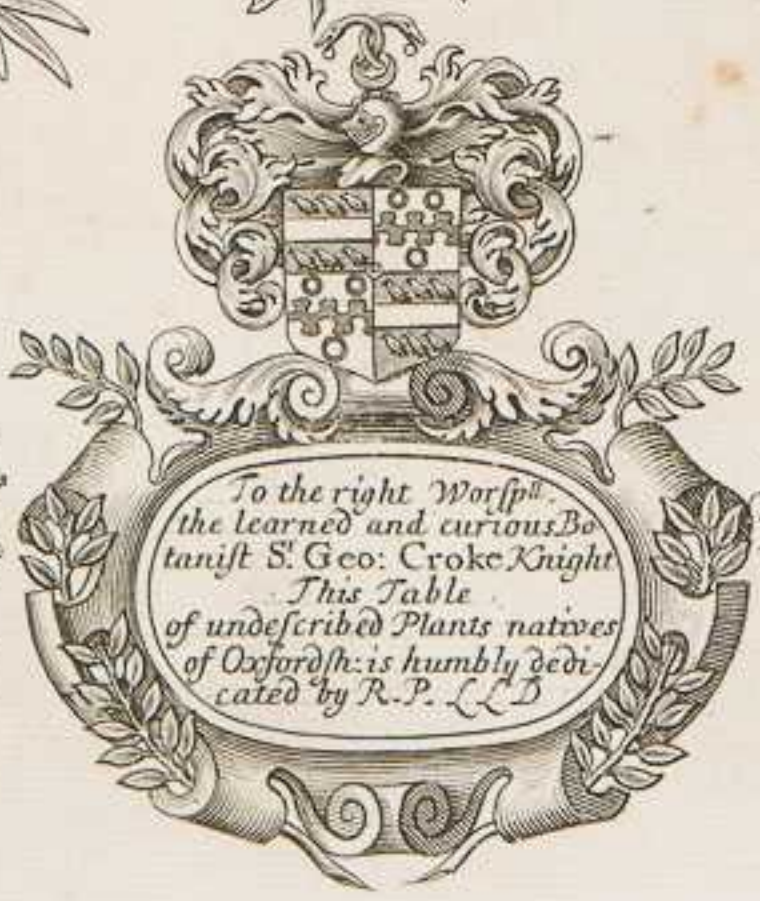 To the right Worſpˡˡ.
the learned and curious Bo
taniſt Sʳ. Geo: Croke Knight
This Table
of undeſcribed Plants natives
of Oxfordſh: is humbly dedi-
cated by R. P. LLD